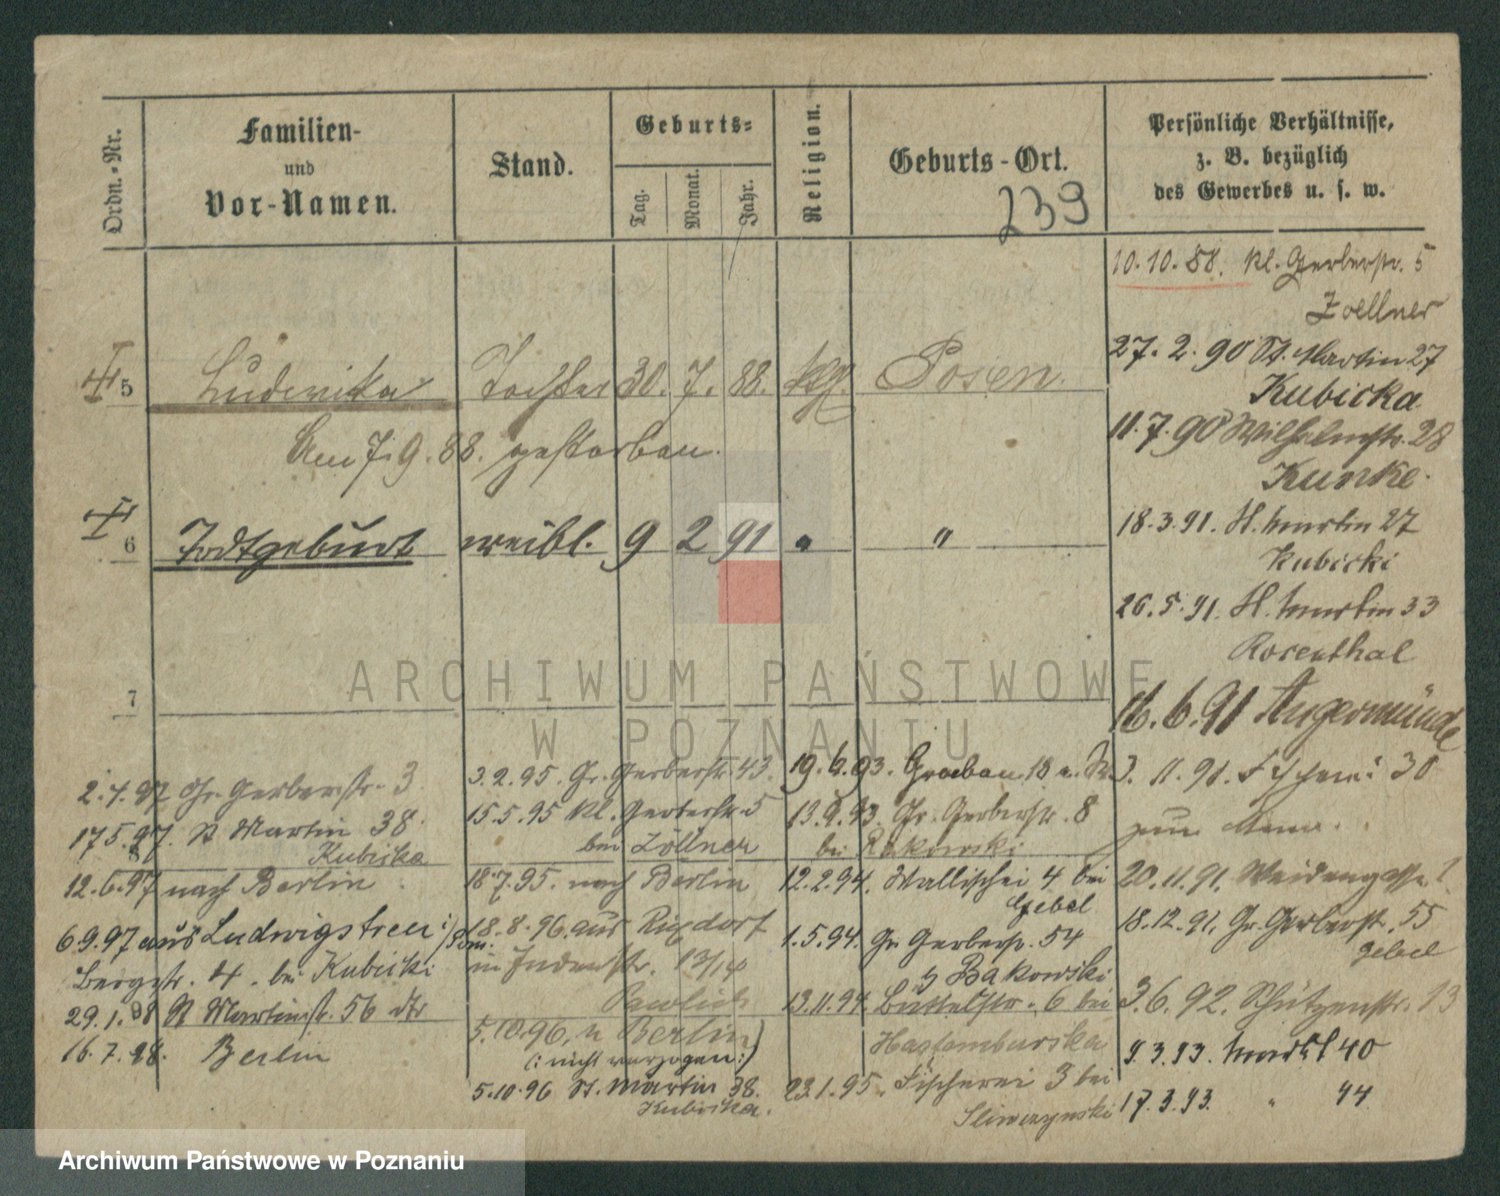 Ordn.-Nr.
Familien-
und
Vor-Namen.
Stand.
Geburts-
Tag.
Monat.
Jahr.
Religion.
Geburts-Ort.
239
Persönliche Verhältnisse,
z. B. bezüglich
des Gewerbes u. s. w.
5 Ludwika Tochter 30. 7. 88. Posen
Am 7. 9. 88. gestorben.
6 Todtgeburt weibl. 9 2 91 " "
7
10.10.88. Kl. Gerberstr. 5
Zoellner
27. 2. 90 St. Martin 27
Kubicka
11. 7. 90 Wilhelmstr. 28
Kunke.
18.3.91. St. Martin 27
Kubicki
26.5.91. St. Martin 33
Rosenthal
16.6.91 Angermünde
3. 11. 91. Fischerei 30
20.11.91. Weidengasse
18.12.91. Gr. Gerberstr. 55
Gebel
3.6.92. Schützenstr. 13
9.3.93. Markt 40
17.3.93. " 44
19.6.93. Graben 18
13.9.93. Gr. Gerberstr. 8
bei Rakowski
12.2.94. Wallischei 4 bei
Gebel
1.5.94. Gr. Gerberstr. 54
Bakowski
13.11.94. Büttelstr. 6 bei
23.1.95. Fischerei 3 bei
Sliwczynski
3.2.95. Gr. Gerberstr. 43.
15.5.95 Kl. Gerberstr. 5
bei Zöllner
18.7.95. nach Berlin
18.8.96. aus Rixdorf
in Judenstr. 13/14
Pawlick
5.10.96. n Berlin
(: nicht verzogen :)
5.10.96 St. Martin 38.
Kubicka.
2.4.97 Gr. Gerberstr. 3
17.5.97. St Martin 38.
Kubicka
12.6.97 nach Berlin
6.9.97 aus Ludwigstreu
Bergstr. 4. bei Kubicki
29.1.98 St Martinstr. 56
16.7.98. Berlin
ARCHIWUM PAŃSTWOWE
W POZNANIU
Archiwum Państwowe w Poznaniu